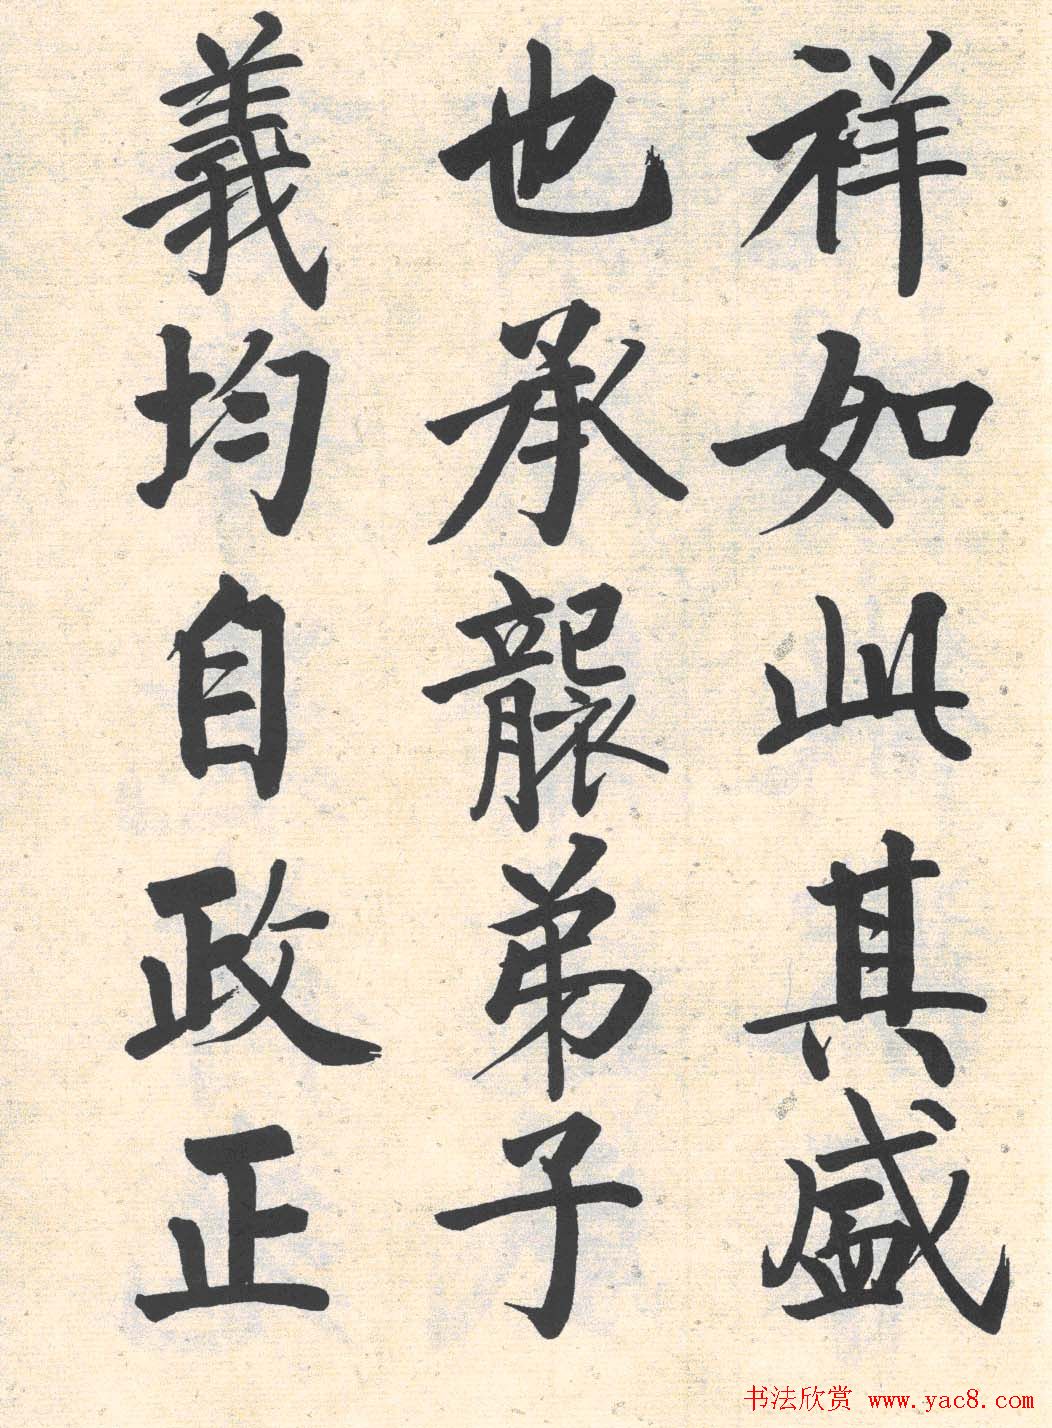 祥如此其盛
也承襲弟子
義均自政正
书法欣赏 www.yac8.com